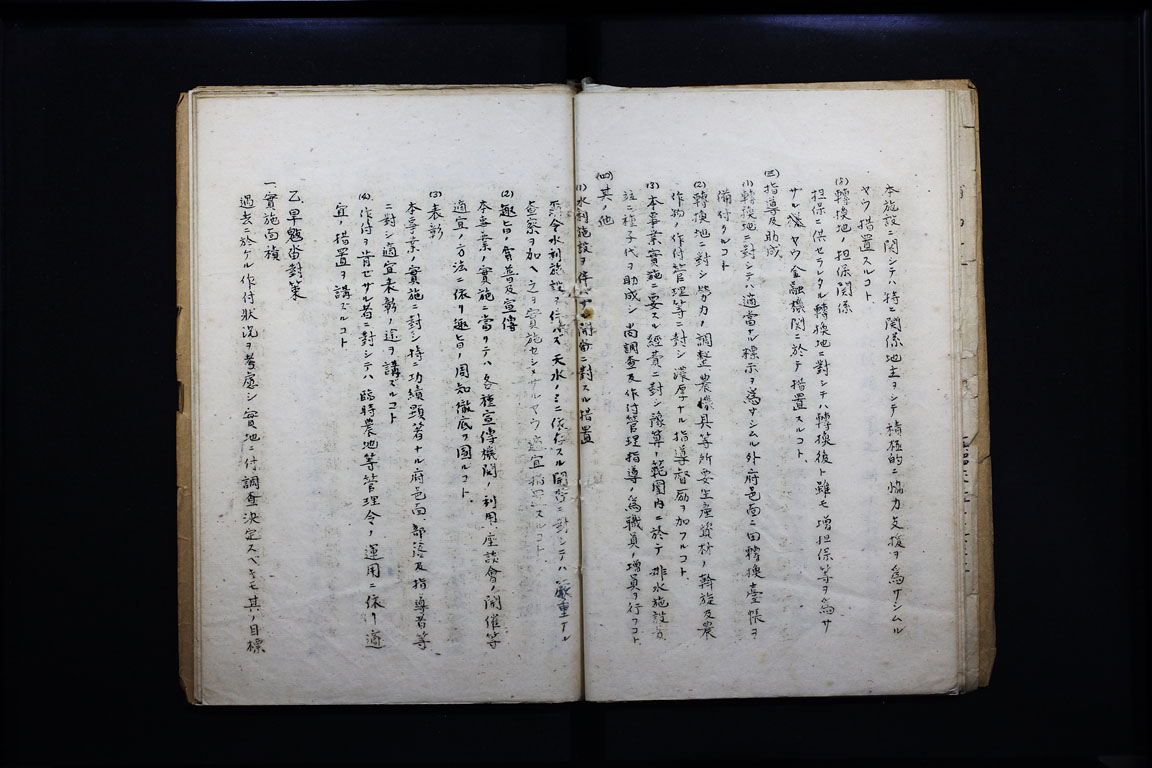 本施設ニ関シテハ特ニ関係地主ヲシテ積極的ニ協力支援ヲ為サシムル
ヤウ措置スルコト、
(8)轉換地ノ担保関係
担保ニ供セラレタル轉換地ニ對シテハ轉換後ト雖モ増担保等ヲ為サ
サル様ヤウ金融機関ニ於テ措置スルコト、
(三)指導及助成
(1)轉換地ニ對シテハ適當ナル標示ヲ為サシムル外府邑面ニ田轉換臺帳ヲ
備付クルコト
(2)轉換地ニ對シ勞力ノ調整農機具等所要生産資材ノ斡旋及農
作物ノ作付管理等ニ對シ濃厚ナル指導督励ヲ加フルコト、
(3)本事業實施ニ要スル経費ニ對シ豫算ノ範圍内ニ於テ排水施設費
竝ニ種子代ヲ助成シ尚調査及作付管理指導ノ為職員ノ増員ヲ行フコト、
(四)其ノ他
(1)水利施設ヲ伴ハサル開畓ニ對スル措置
水利施設ヲ伴ハス天水ノミニ依存スル開畓ニ對シテハ嚴重ナル
査察ヲ加ヘ之ヲ實施セシメサルヤウ適宜指導スルコト、
(2)趣旨ノ普及宣傳
本事業ノ實施ニ當リテハ各種宣傳機関ノ利用、座談會ノ開催等
適宜ノ方法ニ依リ趣旨ノ周知徹底ヲ圖ルコト、
(3)表彰
本事業ノ實施ニ對シ特ニ功績顕著ナル府邑面、部落及指導者等
ニ對シ適宜表彰ノ途ヲ講ズルコト
(4)作付ヲ肯ゼサル者ニ對シテハ臨時農地等管理令ノ運用ニ依リ適
宜ノ措置ヲ講ズルコト
乙、旱魃畓對策
一、實施面積
過去ニ於ケル作付狀況ヲ考慮シ實地ニ付調査決定スベキモ其ノ目標